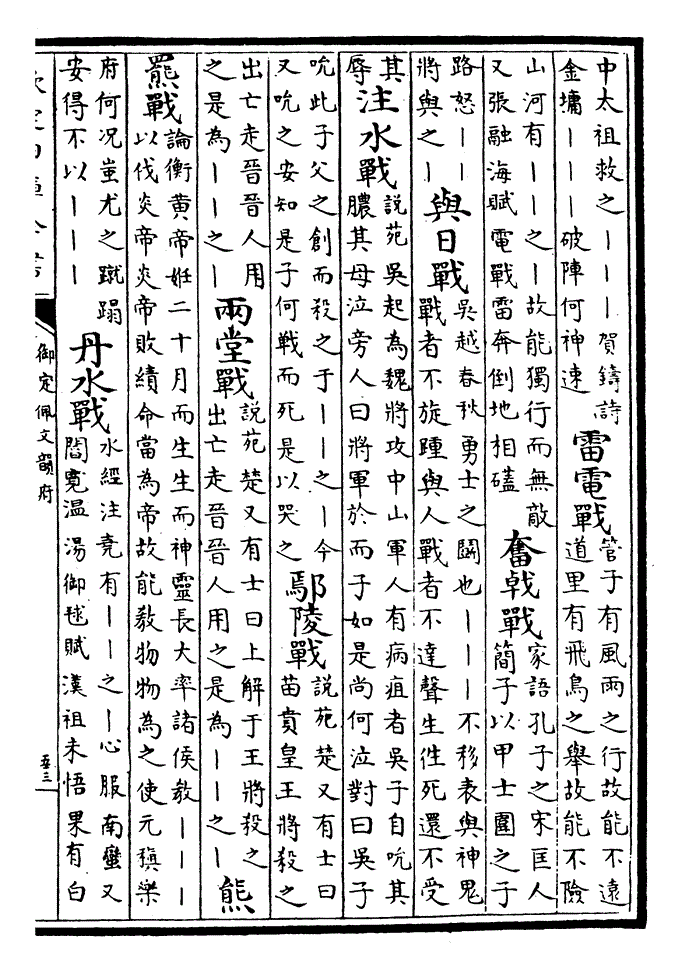 中太祖救之｜｜｜賀鑄詩
金墉｜｜｜破陣何神速
雷電戰
管子有風雨之行故能不遠
道里有飛鳥之舉故能不險
山河有｜｜之｜故能獨行而無敵
又張融海賦電戰雷奔倒地相礚
奮戟戰
家語孔子之宋匡人
簡子以甲士圍之子
路怒｜｜
將與之｜
與日戰
吳越春秋勇士之鬬也｜｜｜不移表與神鬼
戰者不旋踵與人戰者不達聲生徃死還不受
其
辱
注水戰
說苑吳起為魏將攻中山軍人有病疽者吳子自吮其
膿其母泣旁人曰將軍於而子如是尚何泣對曰吳子
吮此子父之創而殺之于｜｜之｜今
又吮之安知是子何戰而死是以哭之
鄢陵戰
說苑楚又有士曰
苗賁皇王將殺之
出亡走晉晉人用
之是為｜｜之｜
兩堂戰
說苑楚又有士曰上解于王將殺之
出亡走晉晉人用之是為｜｜之｜
熊
羆戰
論衡黄帝妊二十月而生生而神靈長大率諸侯教｜｜｜
以伐炎帝炎帝敗績命當為帝故能教物物為之使元稹樂
府何况蚩尤之蹴蹋
安得不以｜｜｜
丹水戰
水經注堯有｜｜之｜心服南蠻又
閻寬温湯御毬賦漢祖未悟果有白
御定佩文韻府